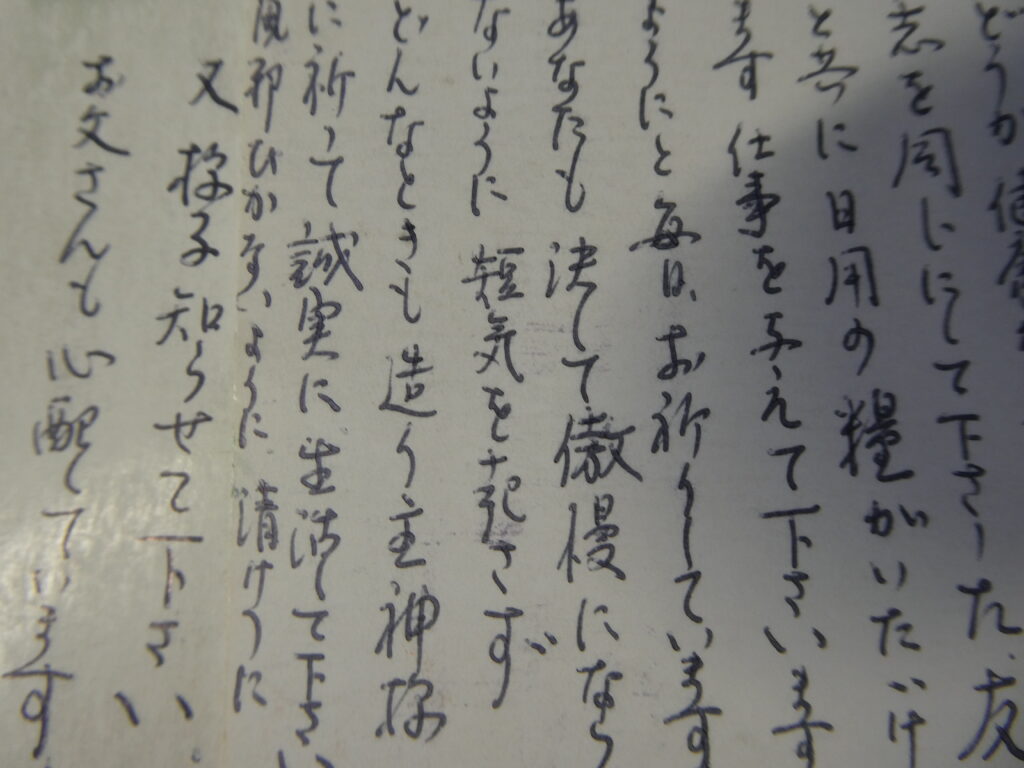 どうか 下さった、友
志を周にして下さ
と共に日用の糧がいただけ
ます 仕事を与えて下さいます
ようにと毎日、お祈りしています
あなたも 決して傲慢になら
ないように 短気を起さず
どんなときも造り主神様
に祈って 誠実に生活して下さい
風邪ひかないように 清けうに
又 様子知らせて下さい
お文さんも心配しています